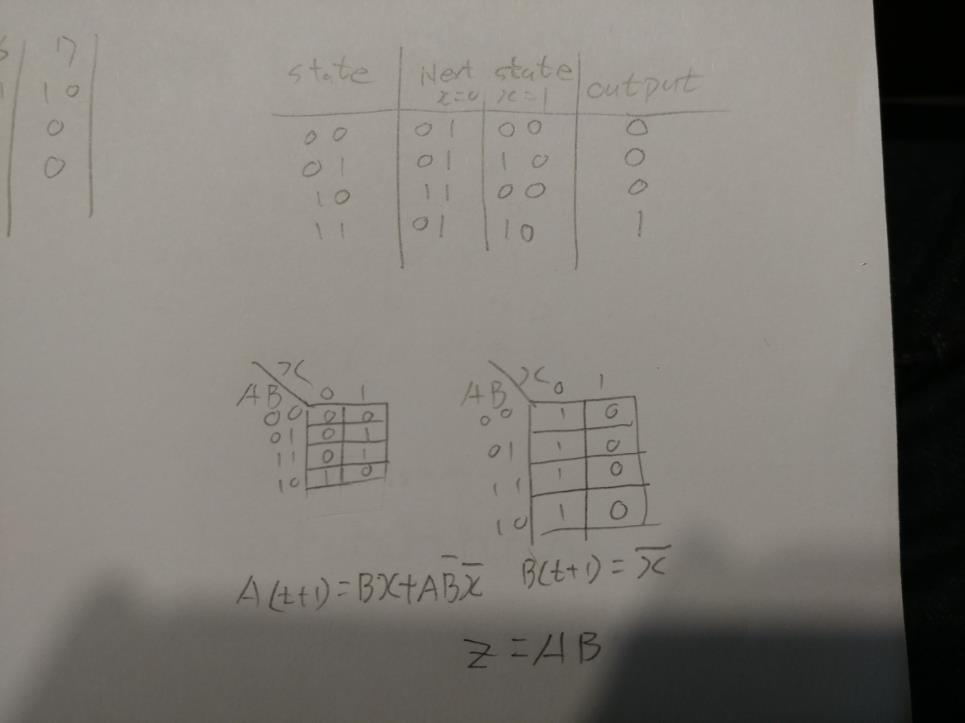 17
1 0
0
0
state Next state output
x=0 x=1
0 0 0 1 0 0 0
0 1 0 1 1 0 0
1 0 1 1 0 0 0
1 1 0 1 1 0 1
x
AB 0 1
0 0 0 0
0 1 0 1
1 1 0 1
1 0 1 0
x
AB 0 1
0 0 1 0
0 1 1 0
1 1 1 0
1 0 1 0
A(t+1)=Bx+AB̅x̅
B(t+1)=x̅
z=AB